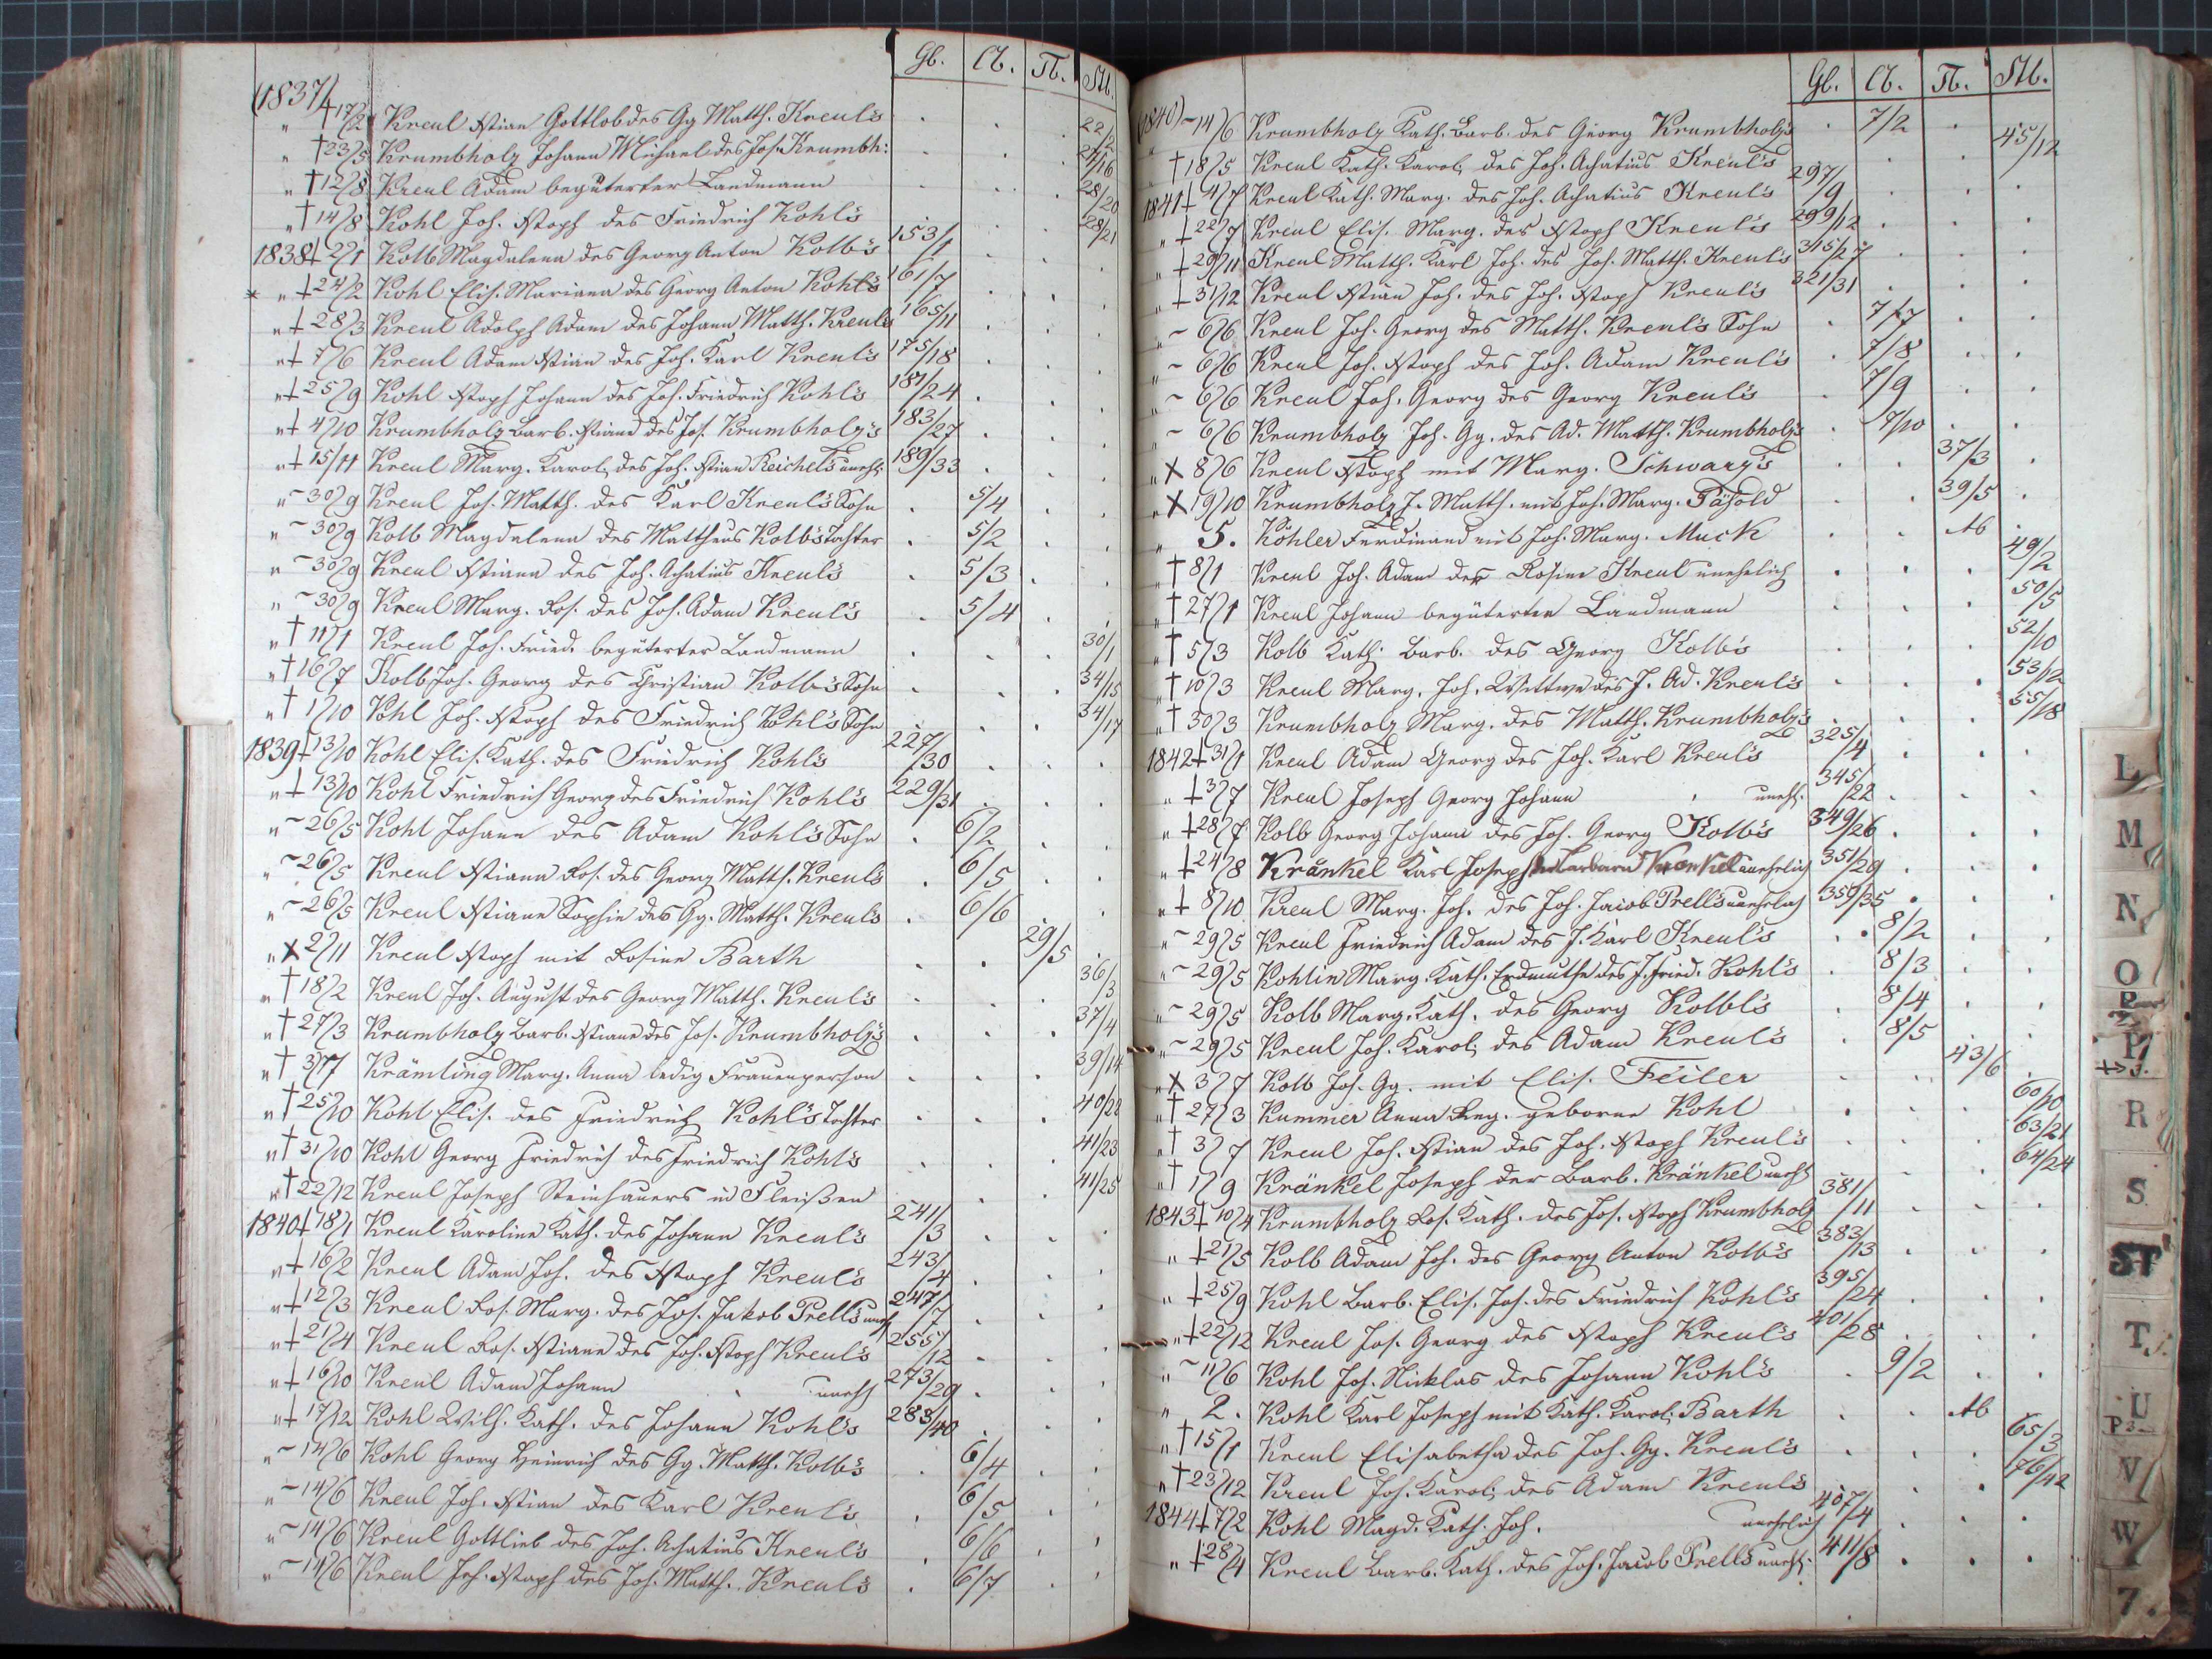 Gb. Cb. Tb. Stb.
(1837)
" †17/2 Kreul Xstian Gottlob des Gg Matth. Kreul's . . . 22/2
" †23/5 Krumbholz Johann Michael des Joh. Krumbh: . . . /16
" †12/8 Kreul Adam begüterter Landmann . . . 28/20
" †14/8 Kohl Joh. Xstoph des Friedrich Kohl's . . . 28/21
1838 ‡2/1 Kolb Magdalena des Georg Anton Kolb's 153/1 . . .
* " ‡24/2 Kohl Elis. Mariana des Georg Anton Kohl's 161/7 . . .
" ‡28/3 Kreul Adolph Adam des Johann Matth. Kreul's 165/11 . . .
" ‡7/6 Kreul Adam Xstian des Joh. Karl Kreul's 175/18 . . .
" ‡25/9 Kohl Xstoph Johann des Joh. Friedrich Kohl's 181/24 . . .
" ‡4/10 Krumbholz Barb. Xstiana des Joh. Krumbholz's 183/27 . . .
" ‡15/11 Kreul Marg. Karol. des Joh. Xstian Reichel's unehl. 189/33 . . .
" ~30/9 Kreul Joh. Matth. des Karl Kreul's Sohn . 5/4 . .
" ~30/9 Kolb Magdalena des Mattheus Kolb's Tochter . 5/2 . .
" ~30/9 Kreul Xstiana des Joh. Achatius Kreul's . 5/3 . .
" ~30/9 Kreul Marg. Ros. des Joh. Adam Kreul's . 5/4 . .
" †11/1 Kreul Joh. Fried. begüterter Landmann . . . 30/1
" †16/7 Kolb Joh. Georg des Christian Kolb's Sohn . . . 34/15
" †1/10 Kohl Joh. Xstoph des Friedrich Kohl's Sohn . . . 34/17
1839 ‡13/10 Kohl Elis. Kath. des Friedrich Kohl's 227/30 . . .
" ‡13/10 Kohl Friedrich Georg des Friedrich Kohl's 229/31 . . .
" ~26/5 Kohl Johann des Adam Kohl's Sohn . 6/2 . .
" ~26/5 Kreul Xstiana Ros. des Georg Matth. Kreul's . 6/5 . .
" ~26/5 Kreul Xstiane Sophie des Gg. Matth. Kreul's . 6/6 . .
" X2/11 Kreul Xstoph mit Rosine Barth . . 29/5 .
" †18/2 Kreul Joh. August des Georg Matth. Kreul's . . . 36/3
" †27/3 Krumbholz Barb. Xstiane des Joh. Krumbholz's . . . 37/4
" †3/7 Krämling Marg. Anna ledig Frauenperson . . . 39/14
" †25/10 Kohl Elis. des Friedrich Kohl's Tochter . . . 40/22
" †31/10 Kohl Georg Friedrich des Friedrich Kohl's . . . 41/23
" †22/12 Kreul Joseph Steinhauers in Fleißen . . . 41/25
1840 ‡18/1 Kreul Karoline Kath. des Johann Kreul's 241/3 . . .
" ‡16/2 Kreul Adam Joh. des Xstoph Kreul's 243/4 . . .
" ‡12/3 Kreul Ros. Marg. des Joh. Jakob Prell's unehl 247/7 . . .
" ‡21/4 Kreul Ros. Xstiane des Joh. Xstoph Kreul's 255/12 . . .
" ‡16/10 Kreul Adam Johann unehl 273/29 . . .
" ‡17/12 Kohl Wilh. Kath. des Johann Kohl's 283/40 . . .
" ~14/6 Kohl Georg Heinrich des Gg. Matth. Kolb's . 6/4 . .
" ~14/6 Kreul Joh. Xstian des Karl Kreul's . 6/5 . .
" ~14/6 Kreul Gottlieb des Joh. Achatius Kreul's . 6/6 . .
" ~14/6 Kreul Joh. Xstoph des Joh. Matth. Kreul's . 6/7 . .
Gb. Cb. Tb. Stb.
(1840) ~14/6 Krumbholz Kath. Barb. des Georg Krumbholz's . 7/2 . .
" †18/5 Kreul Kath. Karol. des Joh. Achatius Kreul's . . . 45/12
1841 ‡4/7 Kreul Kath. Marg. des Joh. Achatius Kreul's 297/9 . . .
" ‡22/7 Kreul Elis. Marg. des Xstoph Kreul's 299/12 . . .
" ‡29/11 Kreul Matth. Karl Joh. des Joh. Matth. Kreul's 315/27 . . .
" ‡31/12 Kreul Xstian Joh. des Joh. Xstoph Kreul's 321/31 . . .
" ~6/6 Kreul Joh. Georg des Matth. Kreul's Sohn . 7/7 . .
" ~6/6 Kreul Joh. Xstoph des Joh. Adam Kreul's . 7/8 . .
" ~6/6 Kreul Joh. Georg des Georg Kreul's . 7/9 . .
" ~6/6 Krumbholz Joh. Gg. des Ad. Matth. Krumbholz's . 7/10 . .
" X8/6 Kreul Xstoph mit Marg. Schwarz's . . 37/3 .
" X19/10 Krumbholz J. Matth. mit Joh. Marg. . . 39/5 .
" 5. Köhler Ferdinand mit Joh. Marg. Muck . . Ab .
" †8/1 Kreul Joh. Adam der Rosine Kreul unehelich . . . 49/2
" †27/1 Kreul Johann begüterter Landmann . . . 50/5
" †5/3 Kolb Kath. Barb. des Georg Kolb's . . . 52/10
" †10/3 Kreul Marg. Joh. Wittwe des J. Ad. Kreul's . . . 53/12
" †30/3 Krumbholz Marg. des Matth. Krumbholz's . . . 55/18
1842 ‡31/1 Kreul Adam Georg des Joh. Karl Kreul's 325/4 . . .
" ‡3/7 Kreul Joseph Georg Johann unehl. 345/22 . . .
" ‡28/7 Kolb Georg Johann des Joh. Georg Kolb's 349/26 . . .
" ‡24/8 Kränkel Karl Joseph der Barbara Kränkel unehelich 351/29 . . .
" ‡8/10 Kreul Marg. Joh. des Joh. Jacob Prell's unehelich 359/35 . . .
" ~29/5 Kreul Friedrich Adam des J. Karl Kreul's . 8/2 . .
" ~29/5 Kohlin Marg. Kath. Erdmuthe des J. Fried. Kohl's . 8/3 . .
" ~29/5 Kolb Marg. Kath. des Georg Kolb's . 8/4 . .
" ~29/5 Kreul Joh. Karol. des Adam Kreul's . 8/5 . .
" X3/7 Kolb Joh. Gg. mit Elis. Feiler . . 43/6 .
" †27/3 Kummer Anna Reg. geborne Kohl . . . 60/10
" †3/7 Kreul Joh. Xstian des Joh. Xstoph Kreul's . . . 63/21
" †1/9 Kränkel Joseph der Barb. Kränkel unehl . . . 64/24
1843 ‡10/4 Krumbholz Ros. Kath. des Joh. Xstoph Krumbholz 381/11 . . .
" ‡21/5 Kolb Adam Joh. des Georg Anton Kolb's 383/13 . . .
" ‡25/9 Kohl Barb. Elis. Joh. des Friedrich Kohl's 395/24 . . .
" ‡22/12 Kreul Joh. Georg des Xstoph Kreul's 401/28 . . .
" ~11/6 Kohl Joh. Nicklas des Johann Kohl's . 9/2 . .
" 2. Kohl Karl Joseph mit Kath. Karol. Barth . . Ab .
" †15/1 Kreul Elisabetha des Joh. Gg. Kreul's . . . 65/3
" †23/12 Kreul Joh. Karol. des Adam Kreul's . . . 76/42
1844 ‡7/2 Kohl Magd. Kath. Joh. unehelich 407/4 . . .
" ‡28/4 Kreul Barb. Kath. des Joh. Jacob Prell's unehl. 411/8 . . .
L
M
N
O
P
R
S
ST
T
U
V
W